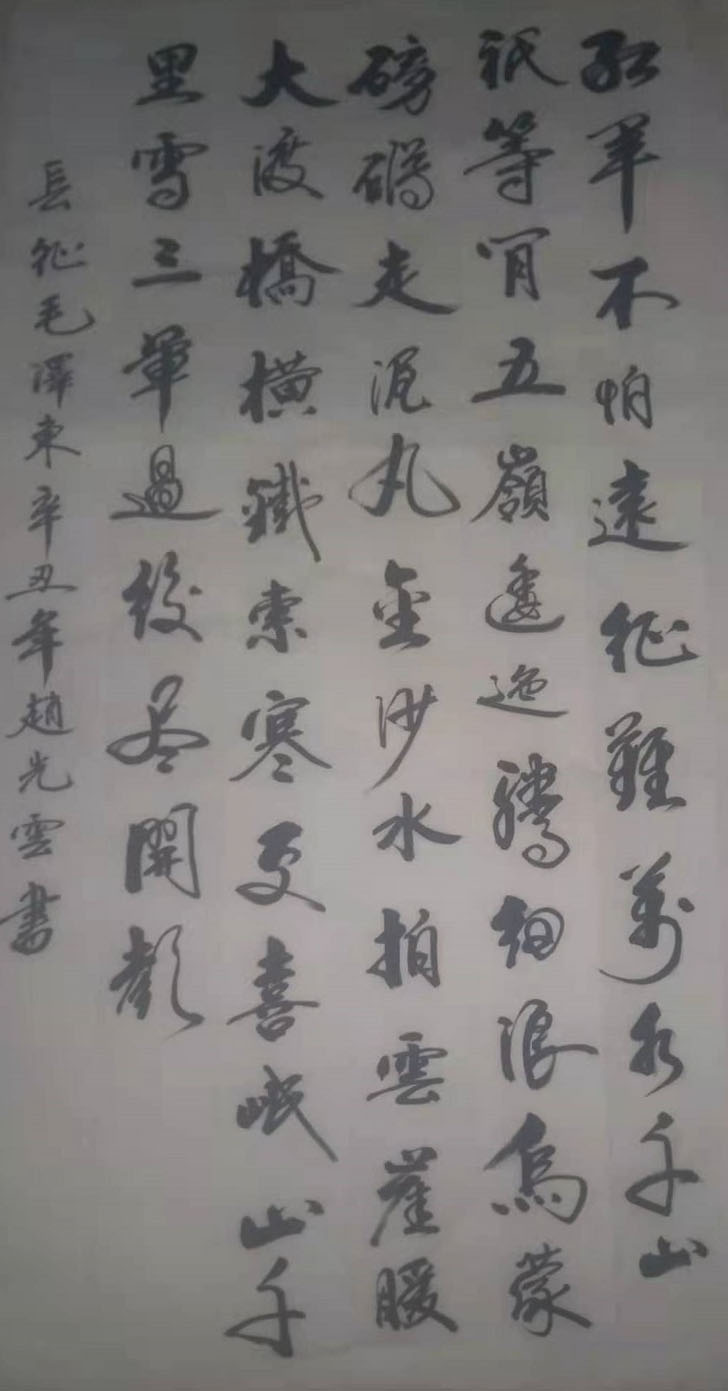 紅軍不怕遠征難萬水千山
祇等閒五嶺逶迤騰細浪烏蒙
磅礴走泥丸金沙水拍雲崖暖
大渡橋橫鐵索寒更喜岷山千
里雪三軍過後尽開顏
長征毛澤東辛丑年趙光雲書